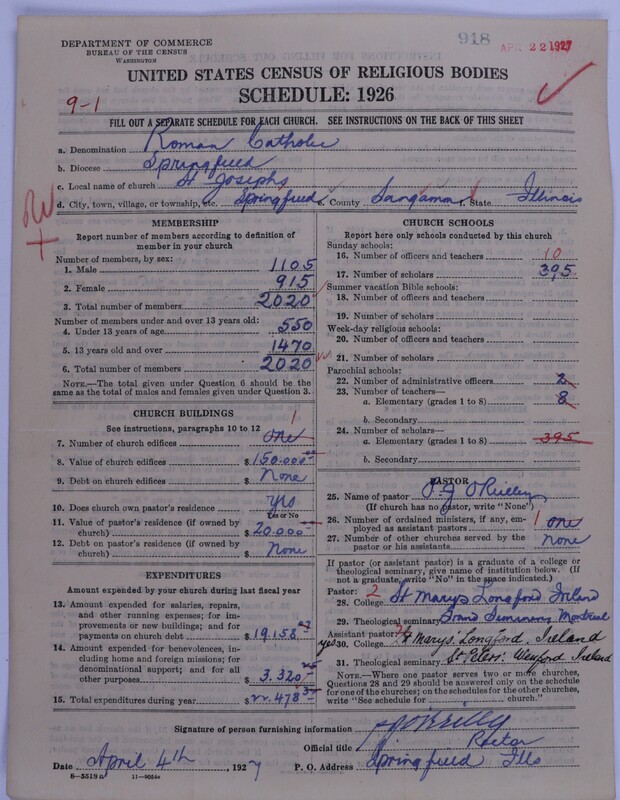 918 APR 22 1927
DEPARTMENT OF COMMERCE
BUREAU OF THE CENSUS
WASHINGTON
UNITED STATES CENSUS OF RELIGIOUS BODIES
SCHEDULE: 1926
9-1
FILL OUT A SEPARATE SCHEDULE FOR EACH CHURCH. SEE INSTRUCTIONS ON THE BACK OF THIS SHEET
a. Denomination Roman Catholic
b. Diocese Springfield
c. Local name of church St Josephs
d. City, town, village, or township, etc. Springfield e. County Sangamon f. State Illinois
MEMBERSHIP
Report number of members according to definition of member in your church
Number of members, by sex:
1. Male 1105
2. Female 915
3. Total number of members 2020
Number of members under and over 13 years old:
4. Under 13 years of age 550
5. 13 years old and over 1470
6. Total number of members 2020
NOTE.—The total given under Question 6 should be
the same as the total of males and females given under Question 3.
CHURCH BUILDINGS
See instructions, paragraphs 10 to 12
1
7. Number of church edifices one
8. Value of church edifices $150.000
9. Debt on church edifices $ None
10. Does church own pastor's residence? yes
Yes or No
11. Value of pastor's residence (if owned by
church) $20.000
12. Debt on pastor's residence (if owned by
church) $ None
EXPENDITURES
Amount expended by your church during last fiscal year
13. Amount expended for salaries, repairs,
and other running expenses; for im-
provements or new buildings; and for
payments on church debt $19.158
14. Amount expended for benevolences, in-
cluding home and foreign missions; for
denominational support; and for all
other purposes $3.320
15. Total expenditures during year $22.478
CHURCH SCHOOLS
Report here only schools conducted by this church
Sunday schools:
16. Number of officers and teachers 10
17. Number of scholars 395
Summer vacation Bible schools:
18. Number of officers and teachers
19. Number of scholars
Week-day religious schools:
20. Number of officers and teachers
21. Number of scholars
Parochial schools:
22. Number of administrative officers 2
23. Number of teachers—
a. Elementary (grades 1 to 8) 8
b. Secondary
24. Number of scholars—
a. Elementary (grades 1 to 8) 395
b. Secondary
PASTOR
25. Name of pastor P. J O'Reilly
(If church has no pastor, write "None")
26. Number of ordained ministers, if any, em-
ployed as assistant pastors 1 one
27. Number of other churches served by the
pastor or his assistants none
If pastor (or assistant pastor) is a graduate of a college or
theological seminary, give name of institution below. (If
not a graduate, write "No" in the space indicated.)
Pastor: 2
28. College St Marys Longford Ireland
29. Theological seminary Grand Seminary Montreal
Assistant pastor:
yes 30. College St Marys' Longford, Ireland
31. Theological seminary St Peters: Wexford, Ireland
NOTE.—Where one pastor serves two or more churches,
Questions 28 and 29 should be answered only on the schedule
for one of the churches; on the schedules for the other churches,
write "See schedule for church."
Signature of person furnishing information P J O'Reilly
Official title Rector
Date April 4th, 1927 P. O. Address Springfield Ills
8—5518a 11—9054